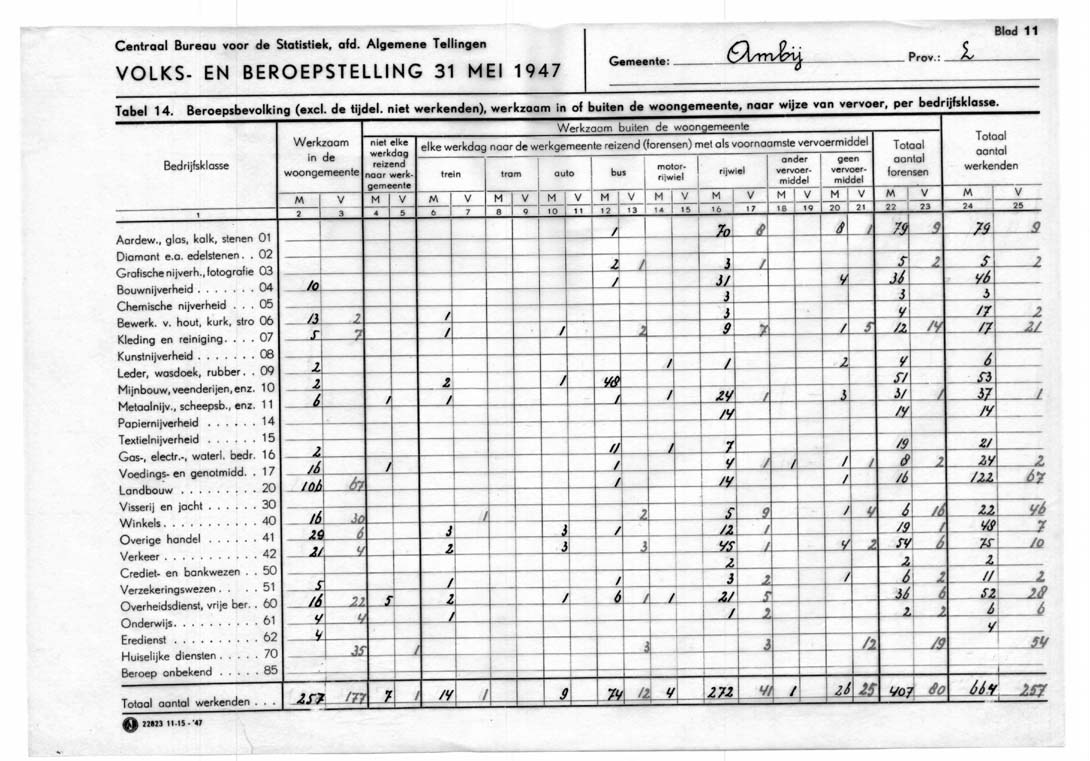 Blad 11
Centraal Bureau voor de Statistiek, afd. Algemene Tellingen
Gemeente: Ambij Prov.: L
VOLKS- EN BEROEPSTELLING 31 MEI 1947
Tabel 14. Beroepsbevolking (excl. de tijdel. niet werkenden), werkzaam in of buiten de woongemeente, naar wijze van vervoer, per bedrijfsklasse.
Bedrijfsklasse
Werkzaam in de woongemeente
Werkzaam buiten de woongemeente
niet elke werkdag reizend naar werkgemeente
elke werkdag naar de werkgemeente reizend (forensen) met als voornaamste vervoermiddel
trein tram auto bus motor-rijwiel rijwiel ander vervoer-middel geen vervoer-middel
Totaal aantal forensen
Totaal aantal werkenden
M V M V M V M V M V M V M V M V M V M V M V M V
1 2 3 4 5 6 7 8 9 10 11 12 13 14 15 16 17 18 19 20 21 22 23 24 25
Aardew., glas, kalk, stenen 01 1 70 8 8 1 79 9 79 9
Diamant e.a. edelstenen . . 02
Grafische nijverh., fotografie 03 2 1 3 1 5 2 5 2
Bouwnijverheid . . . . . . . 04 10 1 31 4 36 46
Chemische nijverheid . . . 05 3 3 3
Bewerk. v. hout, kurk, stro 06 13 2 1 3 4 17 2
Kleding en reiniging. . . . 07 5 7 1 1 2 9 7 1 5 12 14 17 21
Kunstnijverheid . . . . . . . 08
Leder, wasdoek, rubber. . 09 2 1 1 2 4 6
Mijnbouw, veenderijen, enz. 10 2 2 1 48 51 53
Metaalnijv., scheepsb., enz. 11 6 1 1 1 1 24 1 3 31 1 37 1
Papiernijverheid . . . . . . 14 14 14 14
Textielnijverheid . . . . . . 15
Gas-, electr.-, waterl. bedr. 16 2 11 1 7 19 21
Voedings- en genotmidd. . 17 16 1 1 4 1 1 1 1 8 2 24 2
Landbouw . . . . . . . . . 20 106 67 1 14 1 16 122 67
Visserij en jacht . . . . . . 30
Winkels. . . . . . . . . . . 40 16 30 1 2 5 9 1 4 6 16 22 46
Overige handel . . . . . . 41 29 6 3 3 1 12 1 19 1 48 7
Verkeer . . . . . . . . . . 42 21 4 2 3 3 45 1 4 2 54 6 75 10
Crediet- en bankwezen . . 50 2 2 2
Verzekeringswezen. . . . . 51 5 1 1 3 2 1 6 2 11 2
Overheidsdienst, vrije ber. . 60 16 22 5 2 1 6 1 1 21 5 36 6 52 28
Onderwijs. . . . . . . . . . 61 4 4 1 1 2 2 2 6 6
Eredienst . . . . . . . . . 62 4 4
Huiselijke diensten . . . . . 70 35 1 3 3 12 19 54
Beroep onbekend . . . . . 85
Totaal aantal werkenden . . . 257 177 7 1 14 1 9 74 12 4 272 41 1 26 25 407 80 664 257
22823 11-15 - '47